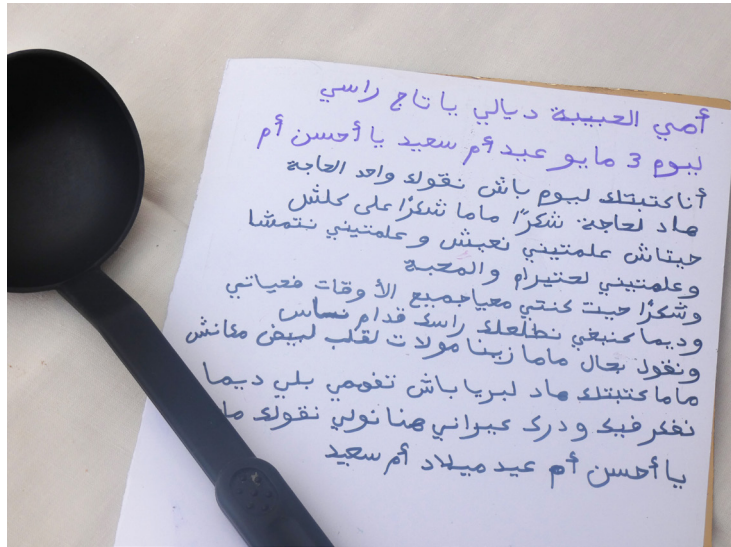 أمي الحبيبة ديالي يا تاج راسي
ليوم 3 مايو عيد أم سعيد يا أحسن أم
أنا كتبتلك ليوم باش نقولك واحد الحاجة
هاد لحاجة شكرًا ماما شكرًا على كلش
حيتاش علمتيني نعيش و علمتيني نتمشا
وعلمتيني لحتيرام والمحبة
وشكرًا حيت كنتي معيا جميع الأوقات فحياتي
وديما كنبغي نطلعلك راسك قدام نساس
ونقول بحال ماما زينا مولات لقلب لبيض مكانش
ماما كتبتلك هاد لبريا باش تفهمي بلي ديما
نفكر فيك ودرك كبراني هنا نولي نقولك
يا أحسن أم عيد ميلاد أم سعيد